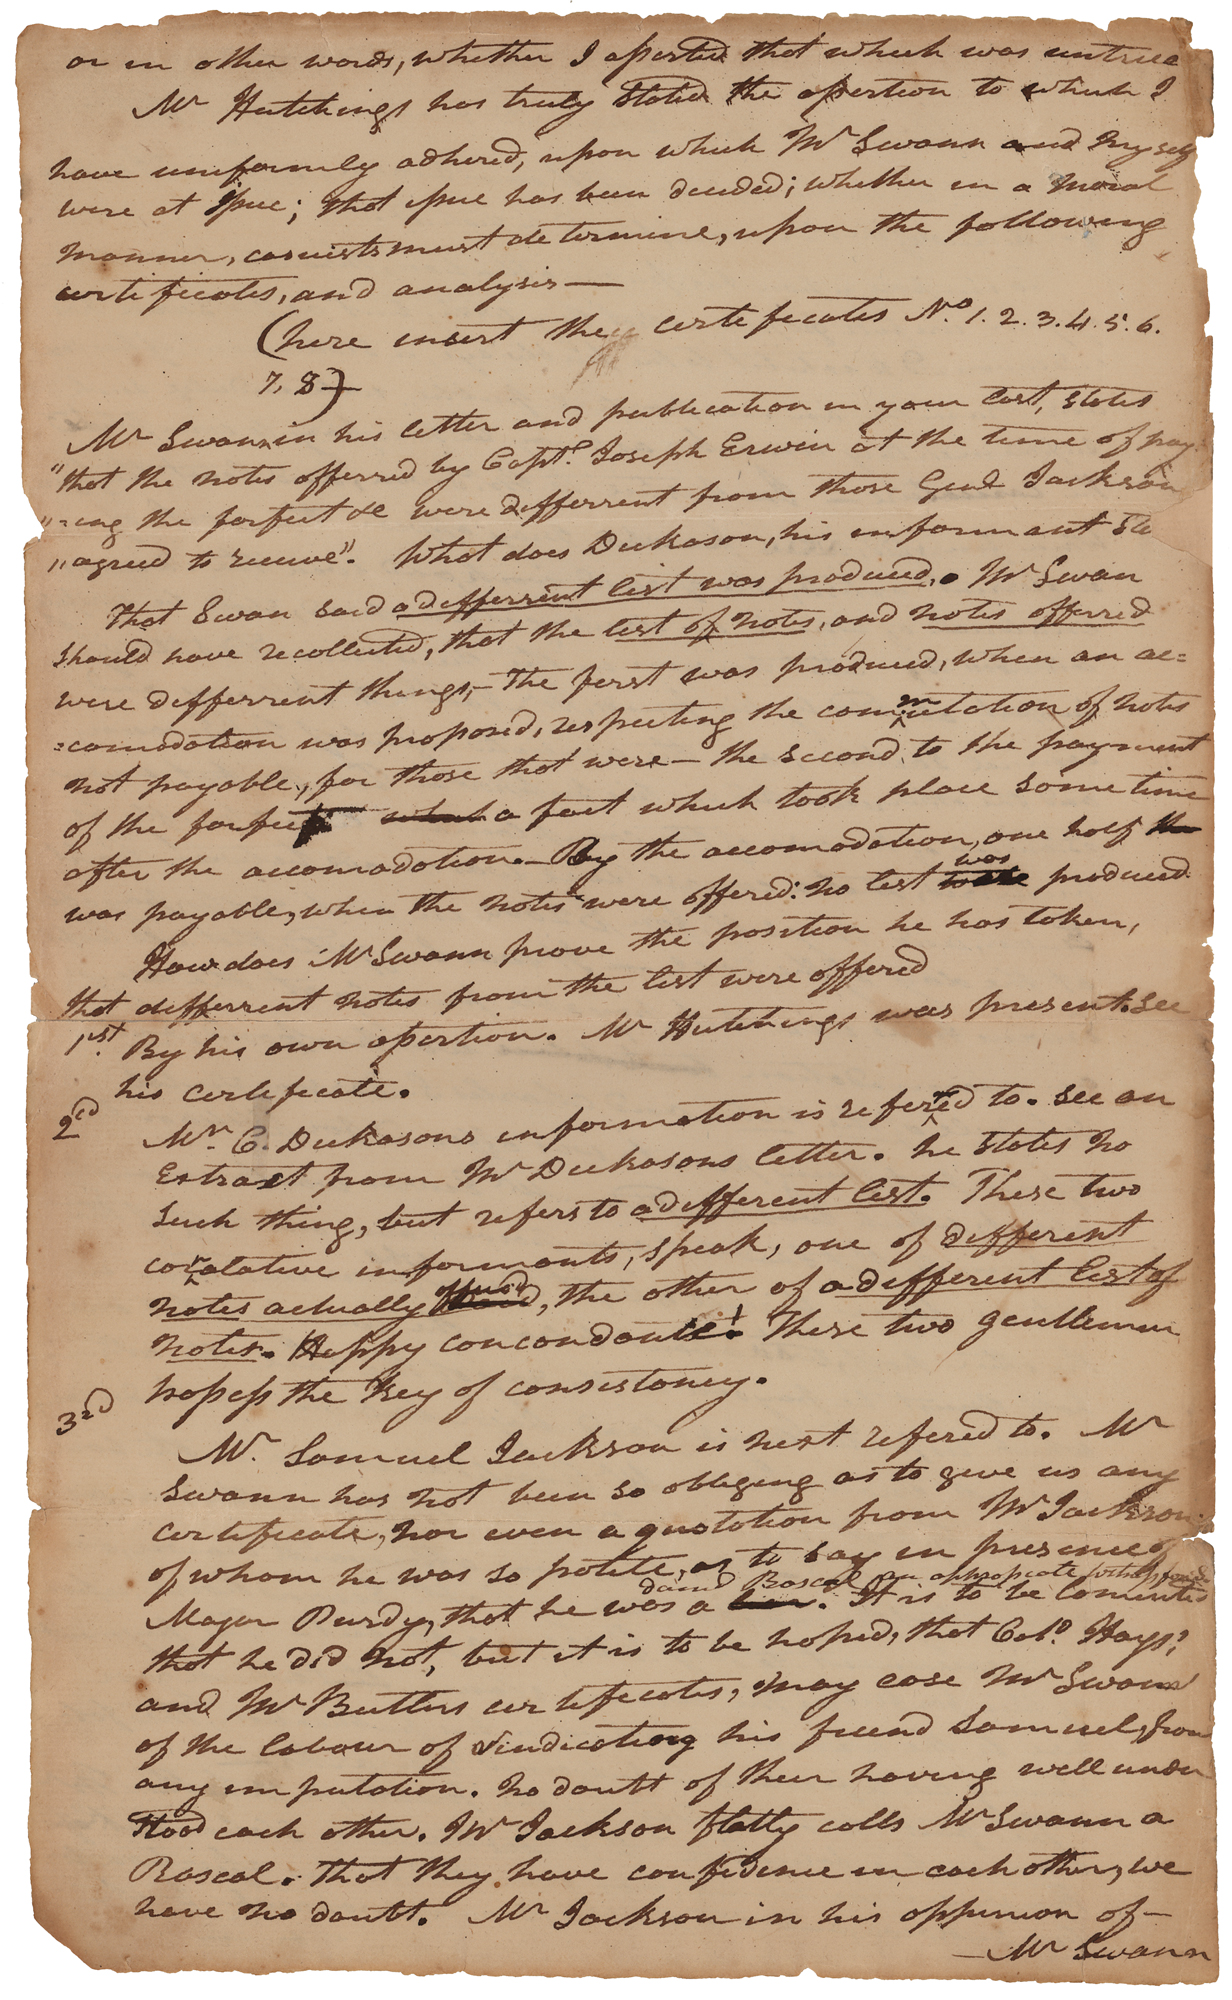 or in other words, whether I asserted that which was untrue
Mr Hutchings has truly stated the assertion to which I
have uniformly adhered, upon which Mr Swann and Myself
were at Issue; that issue has been decided; whether in a moral
manner, casuists must determine, upon the following
certificates, and analysis —
(here insert the certificates No. 1. 2. 3. 4. 5. 6.
7, 8)
Mr Swann in his letter and publication in your last, states
"that the notes offerred by Capt. Joseph Erwin at the time of pay
"-ing the forfeit &c were defferrent from those Genl Jackson
"agreed to receive". What does Dickason, his informant sta
That Swan said a defferrent list was produced. Mr Swan
should have recollected, that the list of notes, and notes offerred
were defferrent things,– The first was produced, when an ac=
=comodation was proposed, respecting the commutation of notes
not payable, for those that were – the second, to the payment
of the forfeit a fact which took place some time
after the accomodation. – By the accomodation, one half
was payable, when the notes were offered: no list was produced
How does Mr Swann prove the position he has taken,
that defferrent notes from the list were offered
1st. By his own assertion. Mr Hutchings was present. see
his certificate.
2nd Mr. C. Dickasons information is referred to. see an
Extract from Mr Dickasons letter. he states no
such thing, but refers to a defferent list. These two
coralative informants, speak, one of different
notes actually offered, the other of a defferent list of
notes. Happy concordance! These two gentlemen
possess the key of consistancy.
3rd Mr. Samuel Jackson is next refered to. Mr
Swann has not been so obliging as to give us any
certificate, nor even a quotation from Mr Jackson
of whom he was so polite, as to say in presence of
damd Rascal an appropriate
Major Purdy, that he was a liar. It is to be
that he did not, but it is to be hoped, that Colo. Hays'
and Mr Butlers certificates, may ease Mr Swann
of the labour of vindicating his friend Samuel, from
any imputation. no doubt of their having well under
stood each other. Mr Jackson flatly calls Mr Swann a
Rascal. That they have confidence in each other, we
have no doubt. Mr Jackson in his oppinion of –
– Mr Swann